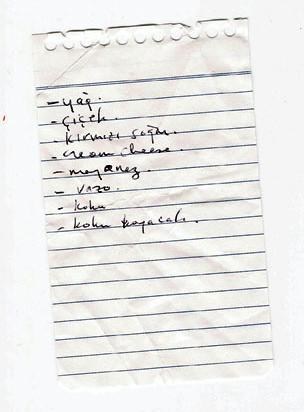 - yağ.
- çiçek.
- kırmızı soğan.
- cream cheese.
- mayonez.
- vazo.
- koku
- koku